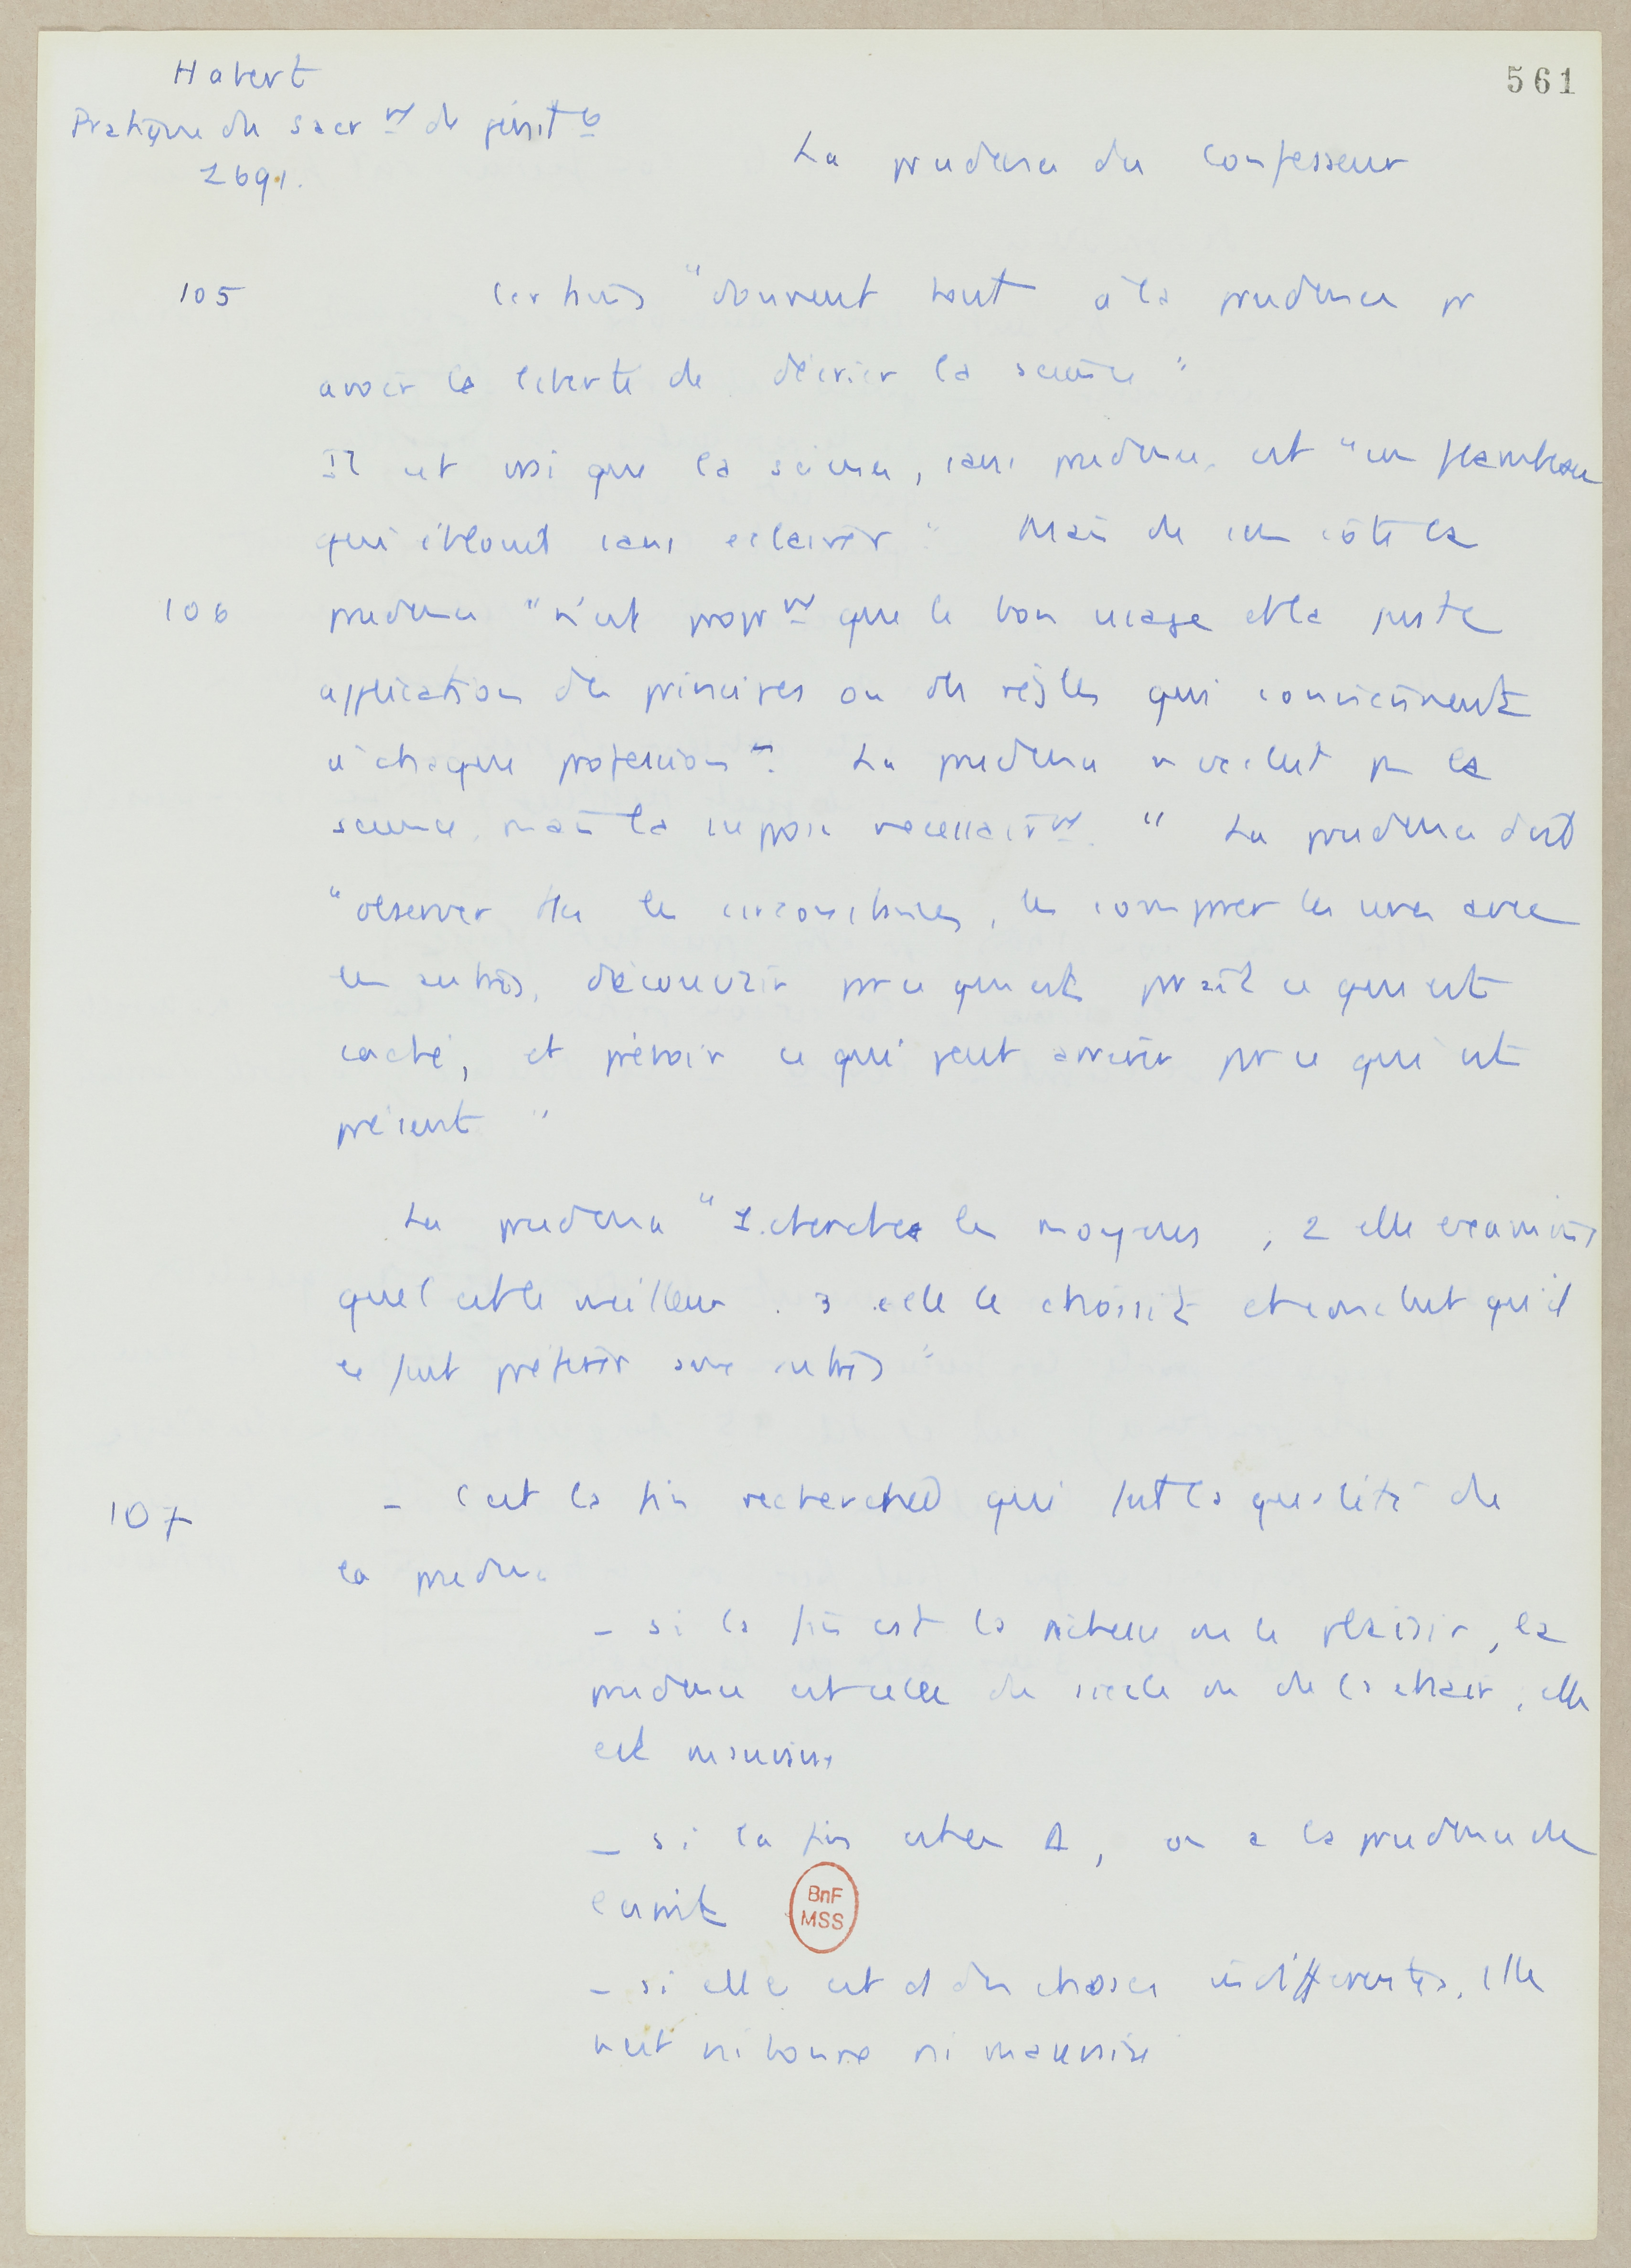 Habert
561
Pratique du sacr nt de pénit ce
1691.
La prudence du confesseur
105 Certains "donnent tout à la prudence pr
avoir la liberté de décrier la science"
Il est vrai que la science, sans prudence, est "un flambeau
qui éblouit sans eclairer" Mais de son côté la
106 prudence "n'est propr nt que le bon usage et la juste
application des principes ou des règles qui conviennent
à chaque profession". La prudence n'exclut pas la
science, mais la suppose necessair nt. " La prudence doit
"observer ttes les circonstances, les comparer les unes avec
les autres, découvrir par ce qui est parait ce qui est
caché, et prévoir ce qui peut arriver par ce qui est
présent"
La prudence "1. cherche les moyens, 2 elle examine
quel est le meilleur. 3 elle le choisit et conclut qu'il
le faut préférer aux autres"
107 - C'est la fin recherchée qui fait la qualité de
la prudence
- si la fin est la richesse ou le plaisir, la
prudence est celle du siècle ou de la chair, elle
est mauvaise
- si la fin est en Δ, on a la prudence de
l'esprit
BnF
MSS
- si elle est d des choses indifférentes, elle
n'est ni bonne ni mauvaise